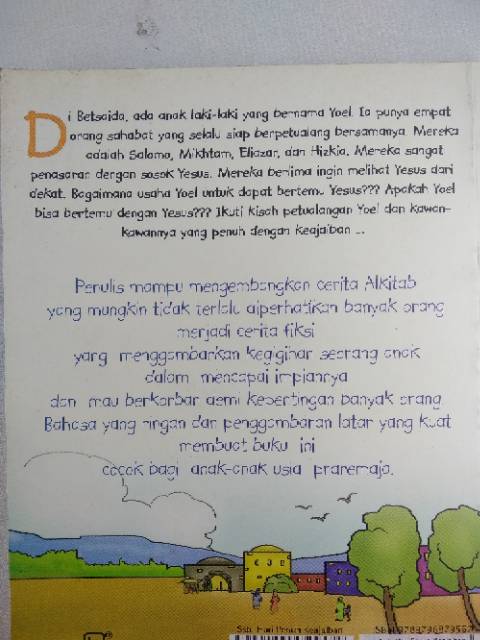 Di Betsaida, ada anak laki-laki yang bernama Yoel. Ia punya empat
orang sahabat yang selalu siap berpetualang bersamanya. Mereka
adalah Salomo, Mikhtam, Eliazar, dan Hizkia. Mereka sangat
penasaran dengan sosok Yesus. Mereka berlima ingin melihat Yesus dari
dekat. Bagaimana usaha Yoel untuk dapat bertemu Yesus??? Apakah Yoel
bisa bertemu dengan Yesus??? Ikuti kisah petualangan Yoel dan kawan-
kawannya yang penuh dengan keajaiban ...
Penulis mampu mengembangkan cerita Alkitab
yang mungkin tidak terlalu diperhatikan banyak orang
menjadi cerita fiksi
yang menggambarkan kegigihan seorang anak
dalam mencapai impiannya
dan mau berkorban demi kepentingan banyak orang.
Bahasa yang ringan dan penggambaran latar yang kuat
membuat buku ini
cocok bagi anak-anak usia praremaja.
Ssb. Hari Penuh Keajaiban